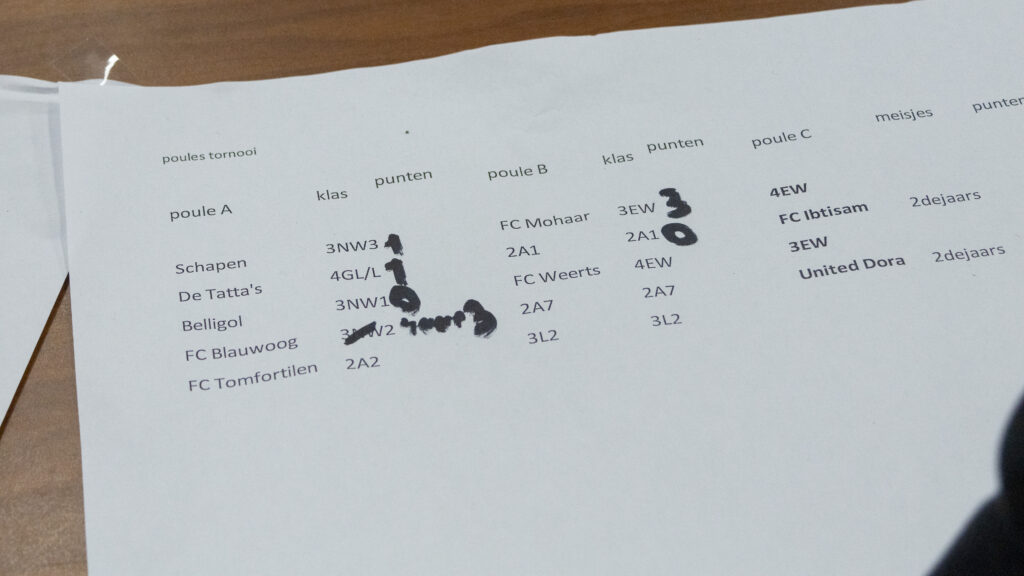 poules tornooi
poule A klas punten poule B klas punten poule C meisjes punten
Schapen 3NW3 1 FC Mohaar 3EW 3 4EW
De Tatta's 4GL/L 1 2A1 2A1 0 FC Ibtisam 2dejaars
Belligol 3NW1 0 FC Weerts 4EW 3EW
FC Blauwoog 3NW2 3 2A7 2A7 United Dora 2dejaars
FC Tomfortilen 2A2 3L2 3L2